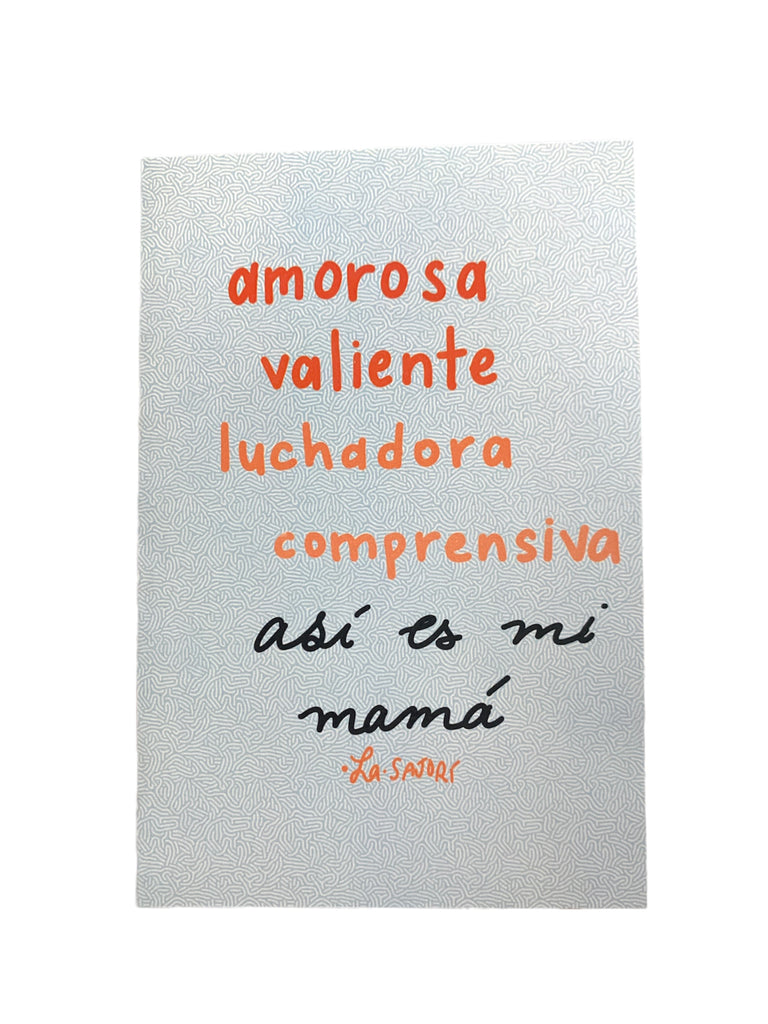 amorosa
valiente
luchadora
comprensiva
así es mi
mamá
·La·SATORÍ